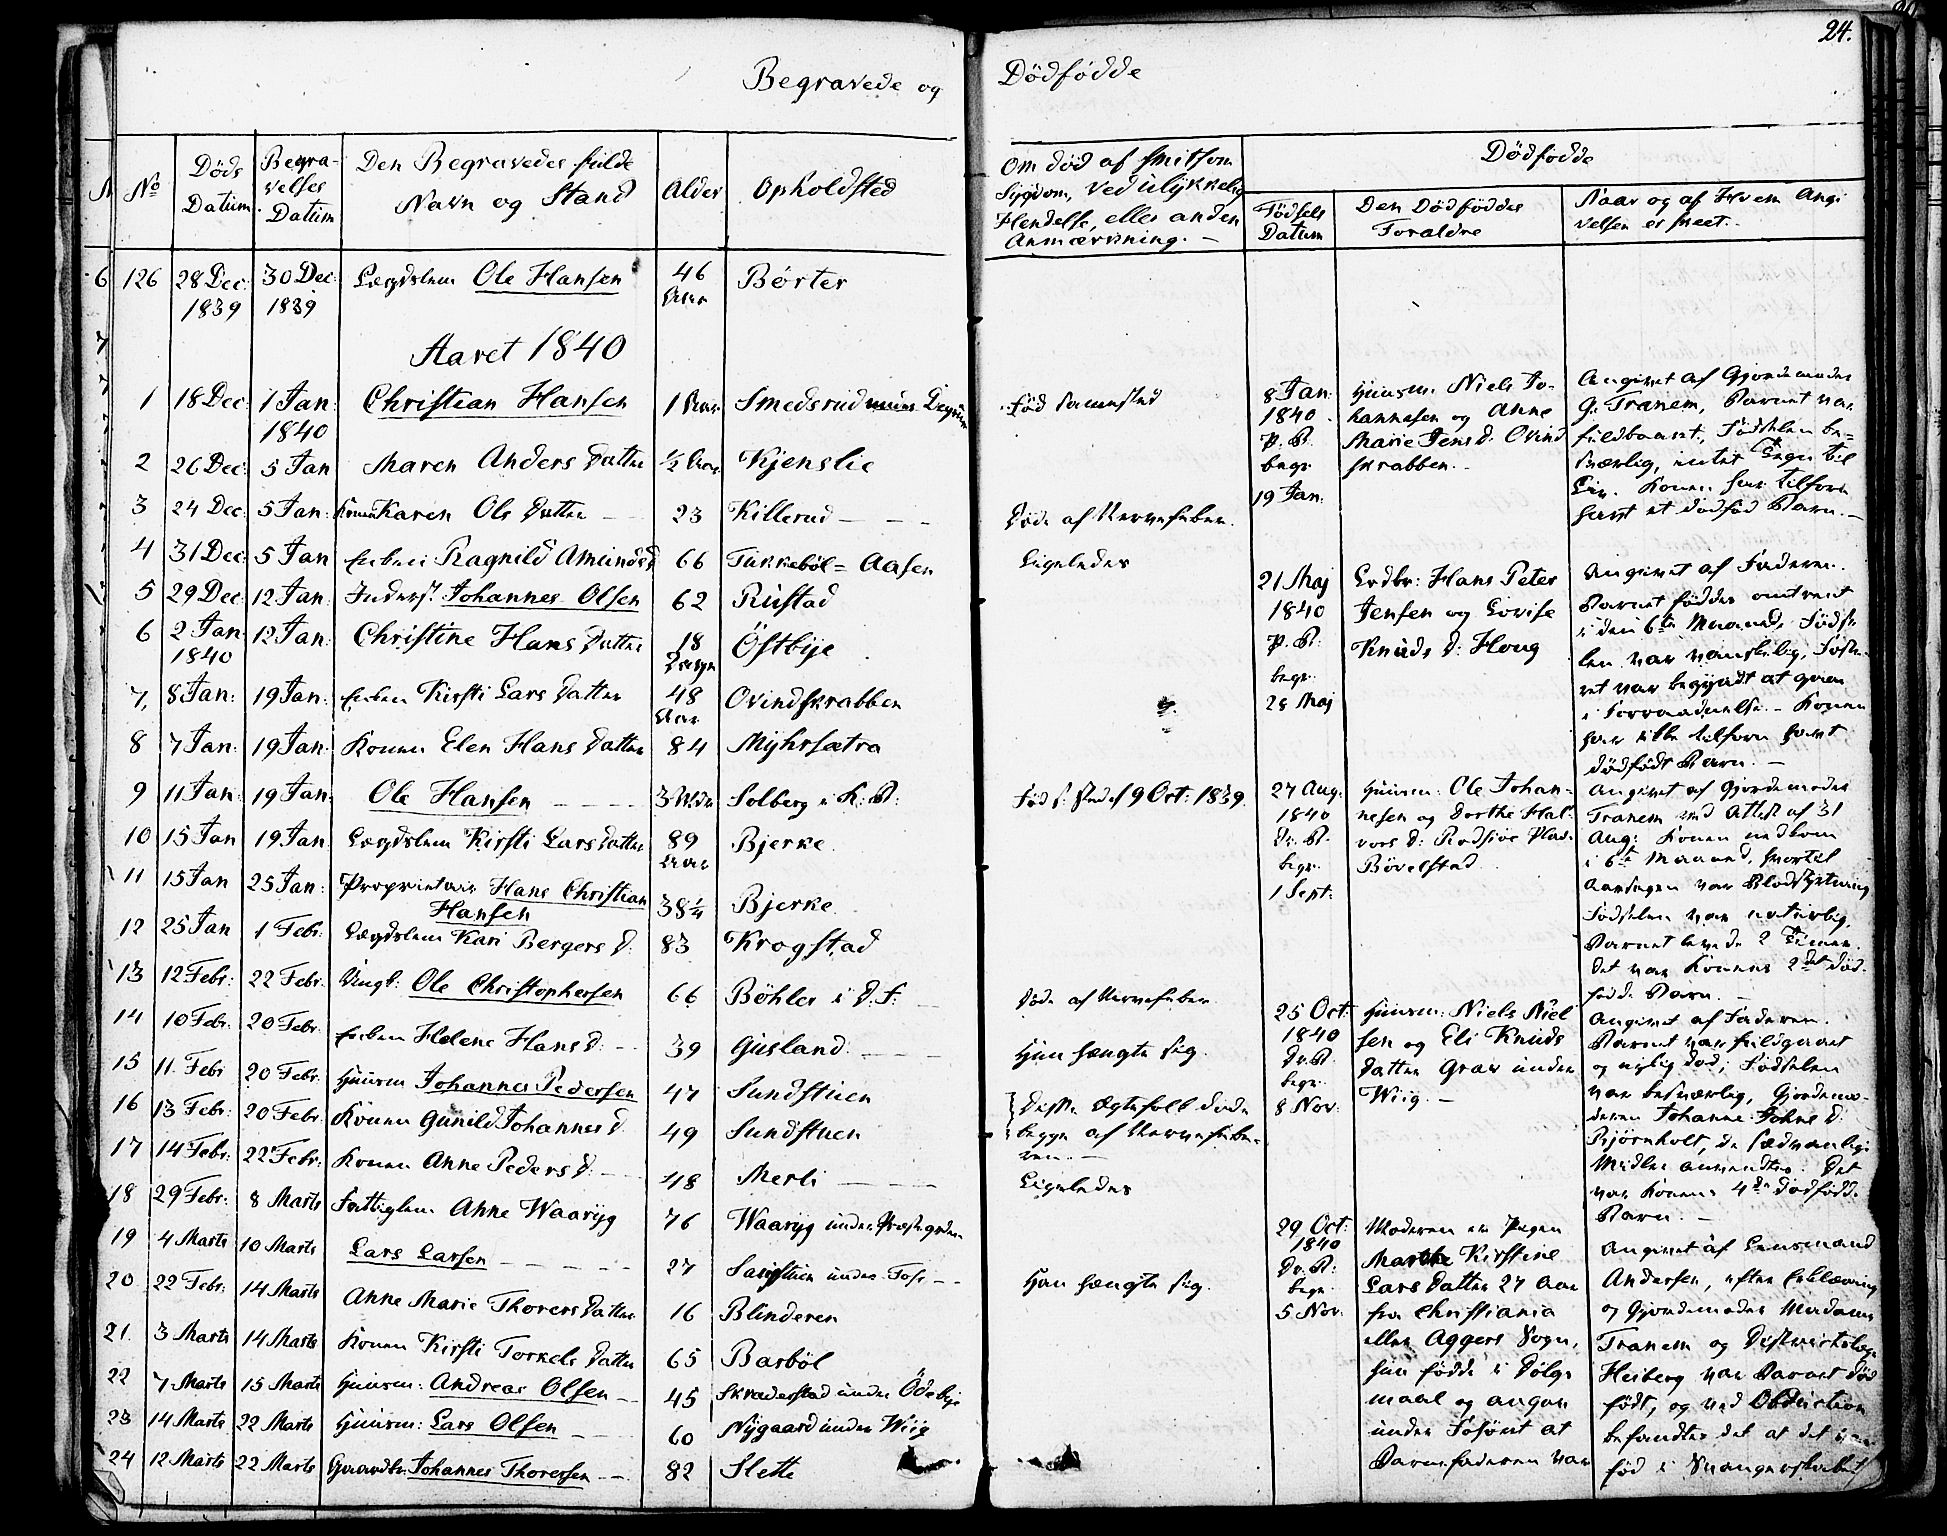 24.
Begravede og Dödfödde
No
Döds Datum
Begravelses Datum
Den Begravedes fulde Navn og Stand
Alder
Opholdsted
Om död af smitsom
Sygdom, ved ulykkelig
Hendelse, eller anden
Anmærkning. —
Dödfödde
Födsels Datum
Den Dödföddes Forældre
Naar og af Hvem Angivelsen er skeet. -
126 28 Dec: 1839 30 Dec: 1839 Lægdslem Ole Hansen 46 Aar Börter
Aaret 1840
1 18 Dec: 1 Jan: 1840 Christian Hansen 1 Smedsrud
2 26 Dec: 5 Jan Maren Anders Datter ½ Aar Kjenslie
3 24 Dec: 5 Jan: Konen Karen Ols Datter 23 Killerud Döde af Nervefeber.
4 31 Dec: 5 Jan Enken Ragnild Amunds d 66 Tukkeböl = Aasen Ligeledes
5 29 Dec: 12 Jan: Inderst. Johannes Olsen 62 Rustad
6 2 Jan: 1840 12 Jan: Christine Hans Datter 18 Östbye
7, 8 Jan: 19 Jan: Enken Kirsti Lars Datter 48 Aar Ovindskrabben
8 7 Jan: 19 Jan: Konen Elen Hans Datter 84 Myhrsætra
9 11 Jan: 19 Jan: Ole Hansen 3 Solberg i K: P: Föd 9 Oct: 1839.
10 15 Jan 19 Jan: Lægdslem Kirsti Lars Datter 89 Aar Bjerke
11 15 Jan 25 Jan: Proprietair Hans Christian Hansen 38¼ Bjerke
12 25 Jan 1 Febr: Lægdslem Kari Bergers D: 83 Krogstad
13 12 Febr: 22 Febr: Ungk: Ole Christophersen 66 Böhler i D. S: Döde af Nervefeber
14 10 Febr: 20 Febr: Enken Helene Hans d: 39 Gusland Hun hængte sig.
15 11 Febr 20 Febr: Huusm Johannes Pedersen 47 Sundstuen Disse Ægtefolk döde
16 13 Febr: 20 Febr: Konen Gunild Johannes d. 49 Sundstuen begge af Nervefeberen. —
17 14 Febr: 22 Febr: Konen Anne Peders d: 48 Merli Ligeledes
18 29 Febr: 8 Marts Fattiglem Anne Waaryg 76 Waaryg under Præstegrden
19 4 Marts 10 Marts Lars Larsen 27 under Foss Han hængte sig.
20 22 Febr: 14 Marts Anne Marie Thorers Datter 16 Blinderen
21. 3 Marts 14 Marts Konen Kirsti Torkels Datter 65 Barböl
22 7 Marts 15 Marts Huusm: Andreas Olsen 45 Skraderstad under Ödebye
23 14 Marts 22 Marts Huusm: Lars Olsen 60 Nygaard under Wiig
24 12 Marts 22 Marts Gaardbr. Johannes Thoresen 82 Slette
8 Jan: 1840. P. K. begr. 19 Jan:
Huusm: Niels Jo-
hannesen og Anne
Marie Jens d: Ovind
skrabben. -
Angivet af Gjordemoder
G. Tranem, Barnet var
fuldbaaret, Födselen be-
sværlig, intet Tegn til
Liv. Konen har tilforn
havt et dödföd Barn. —
21 Maj 1840 P. K: begr. 28 Maj
Hans Peter
Jensen og Lovise
Knuds d: Houg
Angivet af Faderen.
Barnet föddes omtrent
i den 6te Maaned. Födse-
len var vanskelig, Foste-
ret var begyndt at gaae
i Forraadnelse. - Konen
har ikke tilforn havt
dödfödt Barn. —
27 Aug: 1840 Dr. K. begr. 1 Sept:
Huusm: Ole Johan-
nesen og Dorthe Hal-
vors d: Rodsive Plad:
Bövelstad
Angivet af Gjordemoder
Tranem ved Attest af 31
Aug: Konen nedkom
i 6te Maaned, hvortil
Aarsagen var Blodstyrtning
Födselen var naturlig,
Barnet levede 2 Timer.
Det var Konens 2det död-
fødde Barn. —
25 Oct: 1840 Dr. K. begr. 8 Nov:
Huusm: Niels Niel
sen og Eli Knuds
Datter Grav under
Wiig. —
Angivet af Faderen.
Barnet var fuldbaaret
og nylig död, Födselen
var besværlig, Gjordemo-
deren Johanne Johns d:
Björnholt, de sædvanlige
Midler anvendtes. Det
var Konens 4de dödfödde
Barn. —
29 Oct: 1840 Dr. K: begr. 5 Nov:
Moderen er Pigen
Marthe Kirstine
Lars Datter 27 Aar
fra Christiania
eller Aggers Sogn,
hun födde i Dölgs
maal og angav
under Forhöret at
Barnefaderen var
Angivet af Lensmand
Andersen, efter Erklæring
og Gjordemoder Madame
Tranem og Districtslæge
Heiberg var Barnet död
födt, og ved Obduction
befandtes det at det var
föd i Svangerskabet